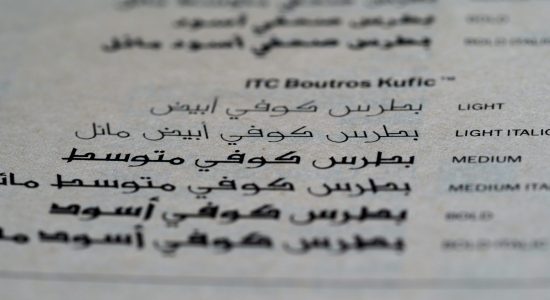 بطرس صحفي أسود BOLD
بطرس صحفي أسود مائل BOLD ITALIC
ITC Boutros Kufic™
بطرس كوفي أبيض LIGHT
بطرس كوفي أبيض مائل LIGHT ITALIC
بطرس كوفي متوسط MEDIUM
بطرس كوفي متوسط مائل MEDIUM ITA
بطرس كوفي أسود BOLD
بطرس كوفي أسود BOLD ITALIC